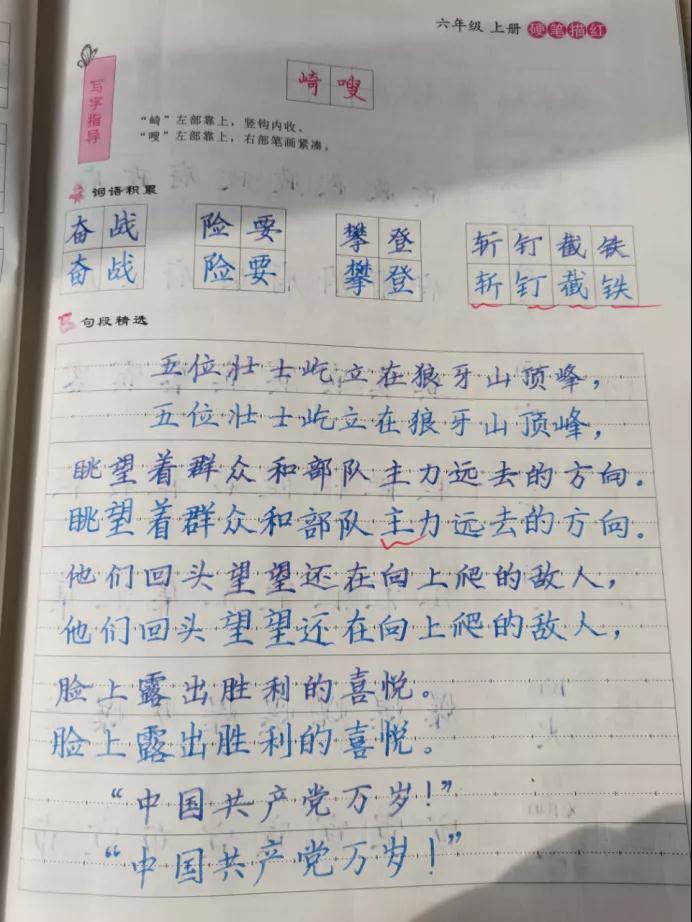 六年级 上册 硬笔描红
写字指导
崎嗖
“崎”左部靠上，竖钩内收。
“嗖”左部靠上，右部笔画紧凑。
词语积累
奋战 险要 攀登 斩钉截铁
奋战 险要 攀登 斩钉截铁
句段精选
五位壮士屹立在狼牙山顶峰，
五位壮士屹立在狼牙山顶峰，
眺望着群众和部队主力远去的方向。
眺望着群众和部队主力远去的方向。
他们回头望望还在向上爬的敌人，
他们回头望望还在向上爬的敌人，
脸上露出胜利的喜悦。
脸上露出胜利的喜悦。
“中国共产党万岁！”
“中国共产党万岁！”